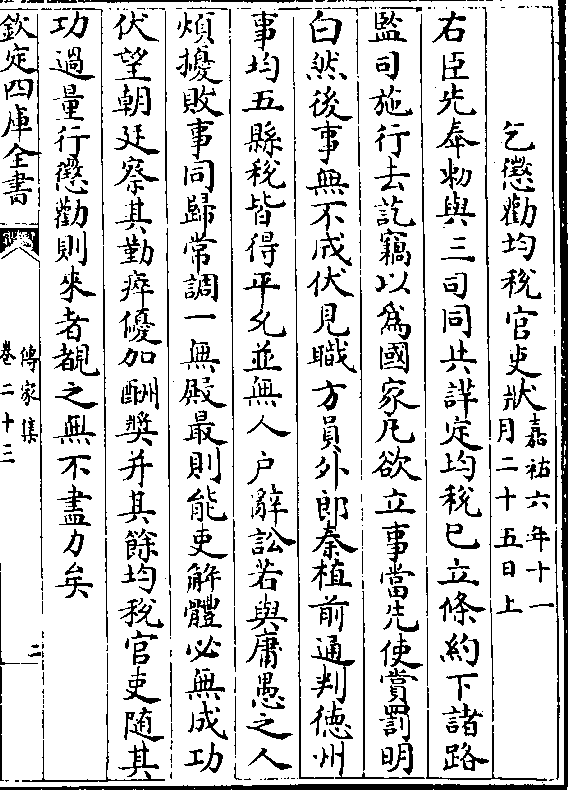 乞懲勸均税官吏狀嘉祐六年十一
月二十五日上
右臣先奉勑與三司同共詳定均税已立條約下諸路
監司施行去訖竊以爲國家凡欲立事當先使賞罰明
白然後事無不成伏見職方員外郎秦植前通判德州
事均五縣税皆得平允並無人户辭訟若與庸愚之人
煩擾敗事同歸常調一無殿最則能吏解體必無成功
伏望朝廷察其勤瘁優加酬奬并其餘均税官吏随其
功過量行懲勸則來者覩之無不盡力矣
欽定四庫全書
傳家集
卷二十三
二